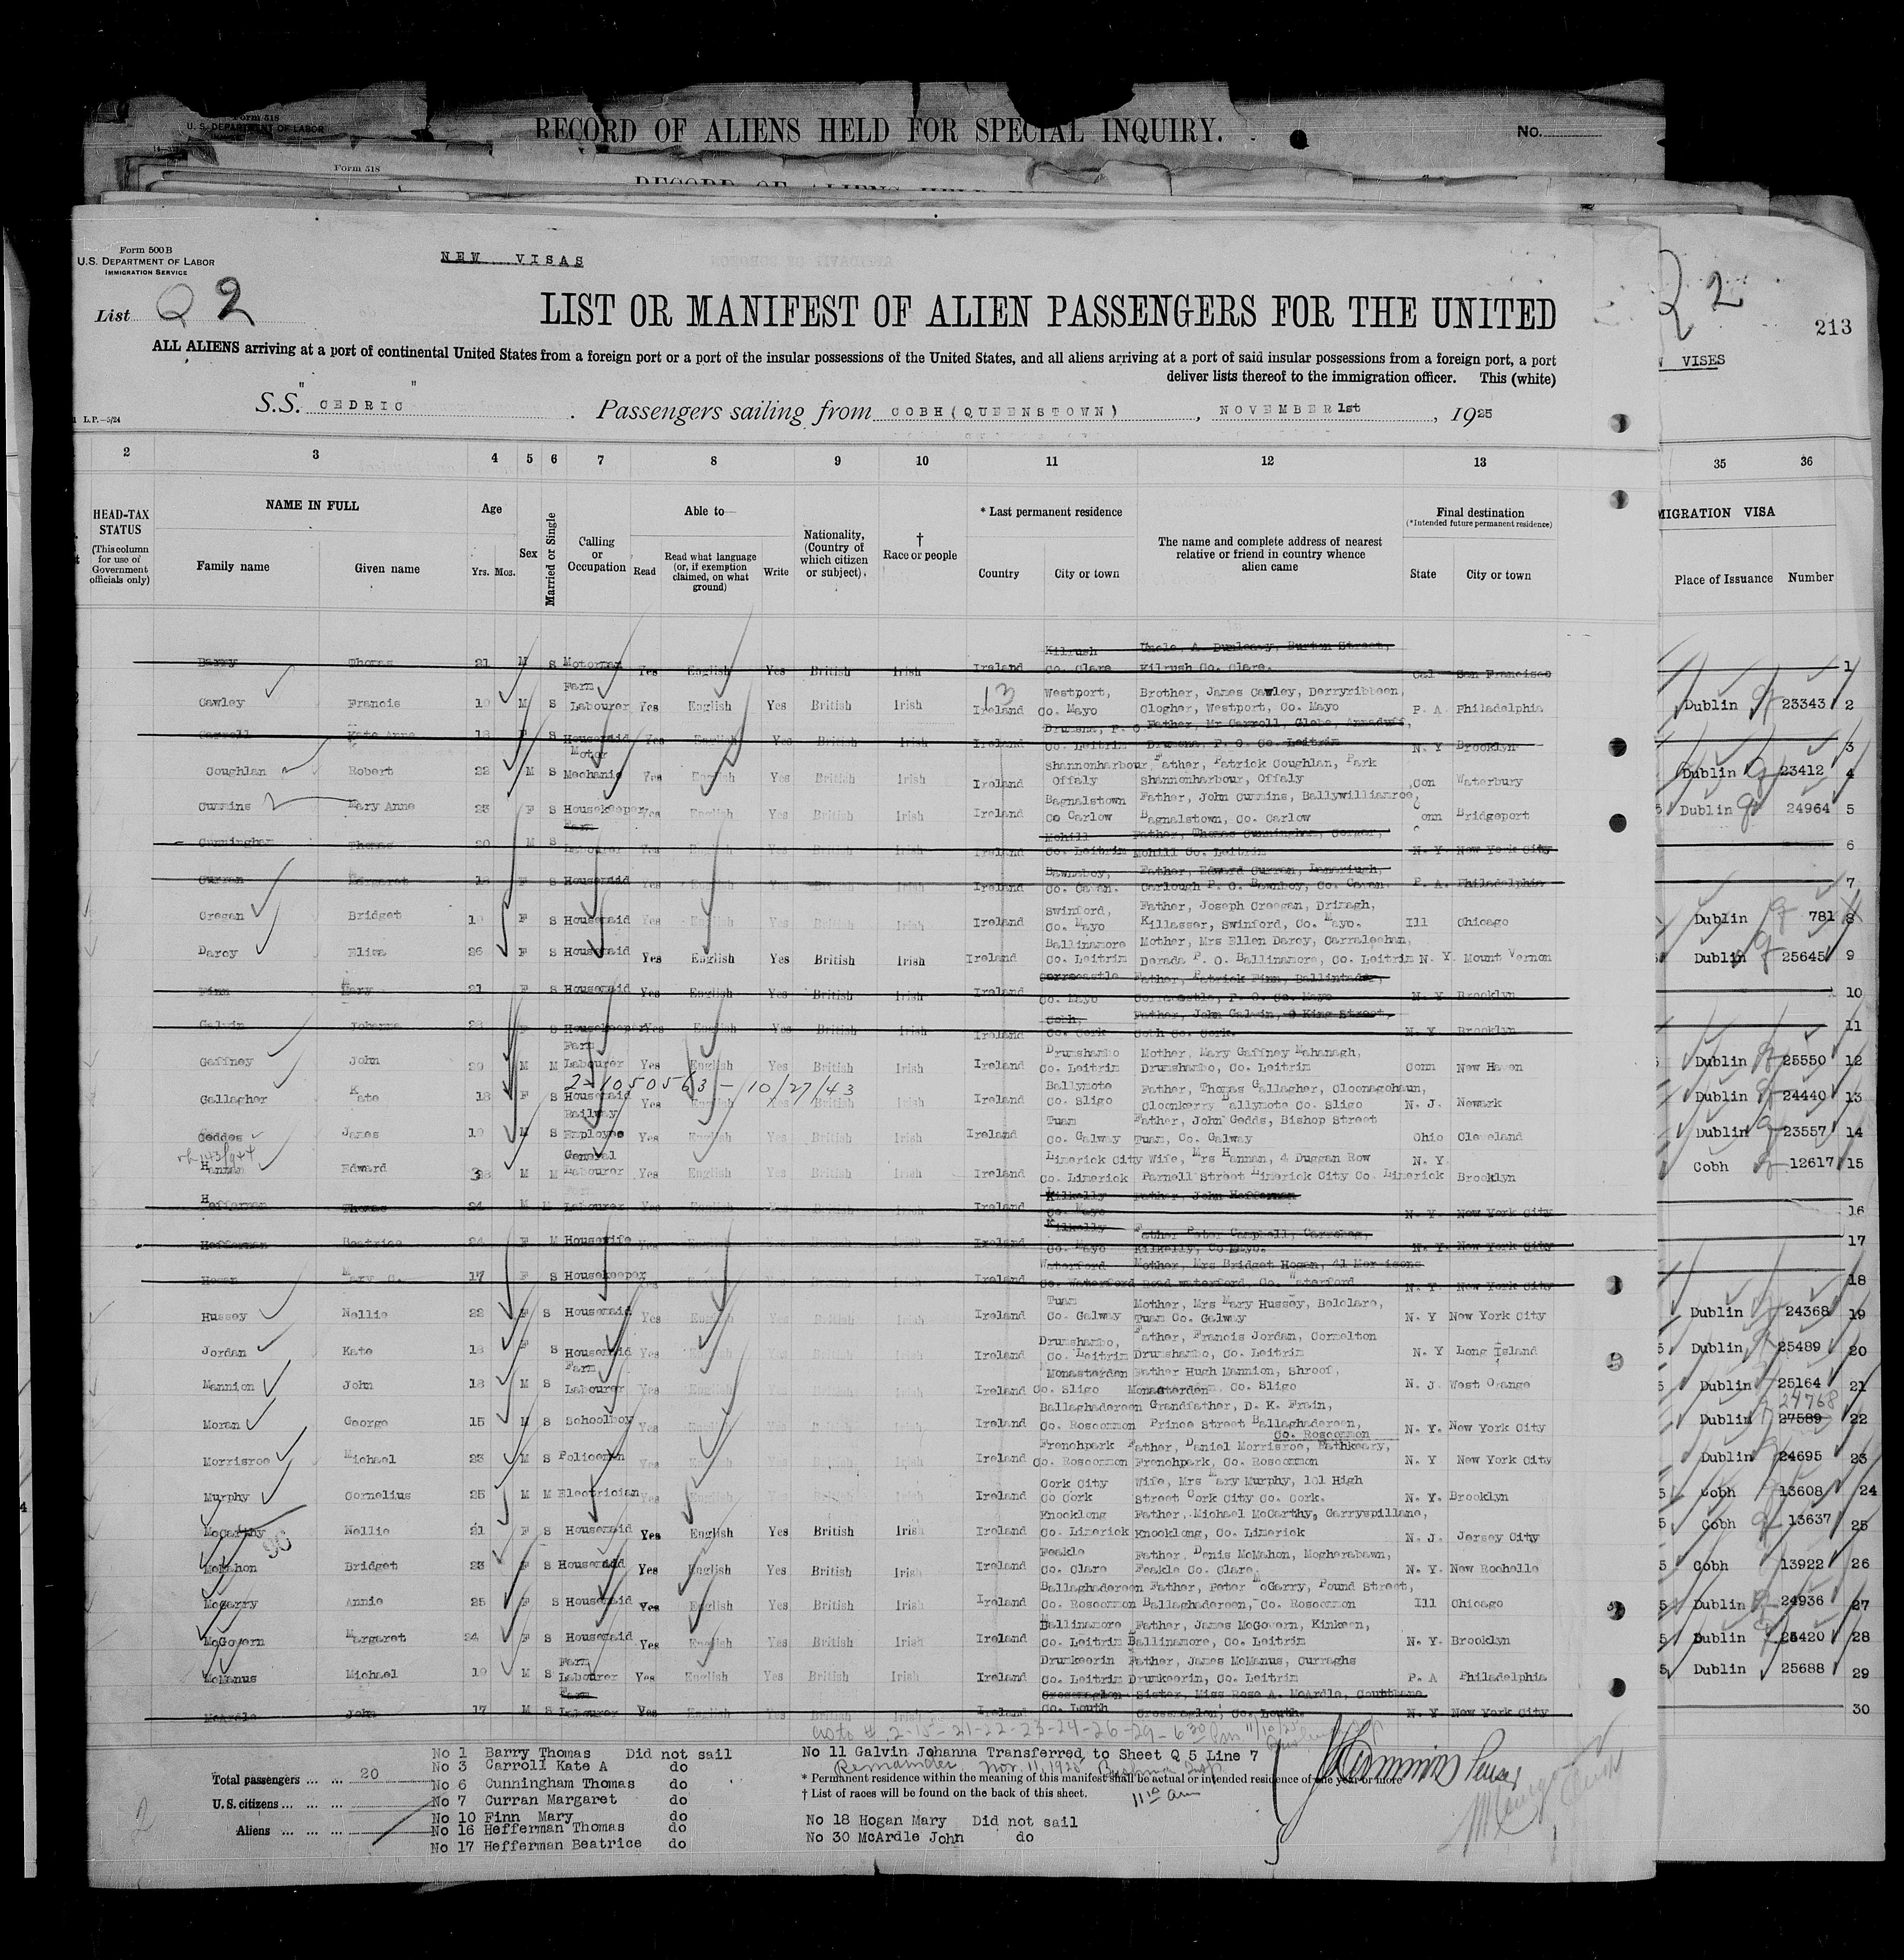 Form 518
U. S. DEPARTMENT OF LABOR
RECORD OF ALIENS HELD FOR SPECIAL INQUIRY.
No.
Form 518
Form 500 B
U.S. DEPARTMENT OF LABOR
IMMIGRATION SERVICE
NEW VISAS
List Q 2
LIST OR MANIFEST OF ALIEN PASSENGERS FOR THE UNITED
Q 2
213
VISES
ALL ALIENS arriving at a port of continental United States from a foreign port or a port of the insular possessions of the United States, and all aliens arriving at a port of said insular possessions from a foreign port, a port
deliver lists thereof to the immigration officer. This (white)
S.S. "CEDRIC" . Passengers sailing from COBH (QUEENSTOWN), NOVEMBER 1st, 1925
L.P.—5/24
2 3 4 5 6 7 8 9 10 11 12 13 35 36
HEAD-TAX STATUS (This column for use of Government officials only)
NAME IN FULL Family name Given name
Age Yrs. Mos.
Sex
Married or Single
Calling or Occupation
Able to— Read Read what language (or, if exemption claimed, on what ground) Write
Nationality, (Country of which citizen or subject).
† Race or people
* Last permanent residence Country City or town
The name and complete address of nearest relative or friend in country whence alien came
Final destination (*Intended future permanent residence) State City or town
MIGRATION VISA Place of Issuance Number
Barry Thomas 21 M S Motorman Yes English Yes British Irish Ireland Kilrush Co. Clare Uncle, A. Dunleavy, Burton Street, Kilrush Co. Clare. Cal San Francisco 1
Cawley Francis 19 M S Farm Labourer Yes English Yes British Irish Ireland Westport, Co. Mayo Brother, James Cawley, Derryribbeen, Clogher, Westport, Co. Mayo P. A Philadelphia Dublin 23343 2
Carroll Kate Anne 18 F S Housemaid Yes English Yes British Irish Ireland Drumsna, P. O. Co. Leitrim Father, Mr Carroll, Glebe, Annaduff, Drumsna, P. O. Co. Leitrim N. Y Brooklyn 3
Coughlan Robert 22 M S Motor Mechanic Yes English Yes British Irish Ireland Shannonharbour Offaly Father, Patrick Coughlan, Park Shannonharbour, Offaly Con Waterbury Dublin 23412 4
Cummins Mary Anne 23 F S Housekeeper Yes English Yes British Irish Ireland Bagnalstown Co Carlow Father, John Cummins, Ballywilliamroe, Bagnalstown, Co. Carlow Conn Bridgeport Dublin 24964 5
Cunningham Thomas 20 M S Farm Labourer Yes English Yes British Irish Ireland Mohill Co. Leitrim Father, Thomas Cunningham, Mohill Co. Leitrim N. Y New York City 6
Curran Margaret 18 F S Housemaid Yes English Yes British Irish Ireland Bawnboy, Co. Cavan. Father, Edward Curran, Carlough P. O. Bawnboy, Co. Cavan. P. A. Philadelphia 7
Cregan Bridget 19 F S Housemaid Yes English Yes British Irish Ireland Swinford, Co. Mayo Father, Joseph Creegan, Drimagh, Killasser, Swinford, Co. Mayo. Ill Chicago Dublin 781 8
Darcy Eliza 26 F S Housemaid Yes English Yes British Irish Ireland Ballinamore Co. Leitrim Mother, Mrs Ellen Darcy, Carraleehan, Derada P. O. Ballinamore, Co. Leitrim N. Y. Mount Vernon Dublin 25645 9
Finn Mary 21 F S Housemaid Yes English Yes British Irish Ireland Co. Mayo Father, Patrick Finn, Ballintadder, P. O. Co. Mayo N. Y Brooklyn 10
Galvin Johanna 28 F S Housekeeper Yes English Yes British Irish Ireland Cobh, Co. Cork Father, John Galvin, 9 King Street, Cobh Co. Cork. N. Y. Brooklyn 11
Gaffney John 29 M M Farm Labourer Yes English Yes British Irish Ireland Drumshambo Co. Leitrim Mother, Mary Gaffney Mahanagh, Drumshambo, Co. Leitrim Conn New Haven Dublin 25550 12
2-1050563 — 10/27/43
Gallagher Kate 18 F S Housemaid Yes English Yes British Irish Ireland Ballymote Co. Sligo Father, Thomas Gallagher, Cloonagohaun, Cloonkerry Ballymote Co. Sligo N. J. Newark Dublin 24440 13
Geddes James 19 M S Railway Employee Yes English Yes British Irish Ireland Tuam Co. Galway Father, John Gedds, Bishop Street Tuam, Co. Galway Ohio Cleveland Dublin 23557 14
Hannan Edward 38 M M General Labourer Yes English Yes British Irish Ireland Limerick City Co. Limerick Wife, Mrs Hannan, 4 Duggan Row Parnell Street Limerick City Co. Limerick N. Y. Brooklyn Cobh 12617 15
Hefferman Thomas 24 M M Labourer Yes English Yes British Irish Ireland Kilkelly Co. Mayo Father, John Hefferman N. Y. New York City 16
Hefferman Beatrice 24 F M Housewife Yes English Yes British Irish Ireland Kilkelly Co. Mayo Father Peter Campbell, Kilkelly, Co Mayo. N. Y. New York City 17
Hogan Mary C. 17 F S Housekeeper Yes Ireland Waterford Co. Waterford Mother, Mrs Bridget Hogan, 41 Morrisons Road Waterford, Co. Waterford N. Y. New York City 18
Hussey Nellie 22 F S Housemaid Yes English Yes British Irish Ireland Tuam Co. Galway Mother, Mrs Mary Hussey, Belclare, Tuam Co. Galway N. Y New York City Dublin 24368 19
Jordan Kate 18 F S Housemaid Yes English Yes British Irish Ireland Drumshambo, Co. Leitrim Father, Francis Jordan, Cornelton Drumshambo, Co. Leitrim N. Y Long Island Dublin 25489 20
Mannion John 18 M S Farm Labourer Yes English Yes British Irish Ireland Monasterden Co. Sligo Father Hugh Mannion, Shroof, Monasterden, Co. Sligo N. J. West Orange Dublin 25164 21
Moran George 15 M S Schoolboy Yes English Yes British Irish Ireland Ballaghadereen Co. Roscommon Grandfather, D. K. Frain, Prince Street Ballaghadereen, Co. Roscommon N. Y. New York City Dublin 27589 24768 22
Morrisroe Michael 23 M S Policeman Yes English Yes British Irish Ireland Frenchpark Co. Roscommon Father, Daniel Morrisroe, Rathkeary, Frenchpark, Co. Roscommon N. Y New York City Dublin 24695 23
Murphy Cornelius 25 M M Electrician Yes English Yes British Irish Ireland Cork City Co Cork Wife, Mrs Mary Murphy, 101 High Street Cork City Co. Cork. N. Y. Brooklyn Cobh 13608 24
McCarthy Nellie 21 F S Housemaid Yes English Yes British Irish Ireland Knocklong Co. Limerick Father, Michael McCarthy, Garryspillane, Knocklong, Co. Limerick N. J. Jersey City Cobh 13637 25
McMahon Bridget 23 F S Housemaid Yes English Yes British Irish Ireland Feakle Co. Clare Father, Denis McMahon, Mogherabawn, Feakle Co. Clare. N. Y. New Rochelle Cobh 13922 26
McGarry Annie 25 F S Housemaid Yes English Yes British Irish Ireland Ballaghadereen Co. Roscommon Father, Peter McGarry, Pound Street, Ballaghadereen, Co. Roscommon Ill Chicago Dublin 24936 27
McGovern Margaret 24 F S Housemaid Yes English Yes British Irish Ireland Ballinamore Co. Leitrim Father, James McGovern, Kinkeen, Ballinamore, Co. Leitrim N. Y. Brooklyn Dublin 25420 28
McManus Michael 19 M S Farm Labourer Yes English Yes British Irish Ireland Drumkeerin Co. Leitrim Father, James McManus, Curraghs Drumkeerin, Co. Leitrim P. A Philadelphia Dublin 25688 29
McArdle John 17 M S Farm Labourer Yes English Yes British Irish Ireland Crossmaglen Co. Louth Sister, Miss Rose A. McArdle, Crossmaglen, Co. Louth. N. Y New York City 30
2-15-21-22-23-24-26-29-6 30 Pm 11/10/25
Total passengers ... ... 20
U. S. citizens ... ... ...
Aliens ... ... ...
No 1 Barry Thomas Did not sail
No 3 Carroll Kate A do
No 6 Cunningham Thomas do
No 7 Curran Margaret do
No 10 Finn Mary do
No 16 Hefferman Thomas do
No 17 Hefferman Beatrice do
No 11 Galvin Johanna Transferred to Sheet Q 5 Line 7
Remainder Nov. 11, 1925
* Permanent residence within the meaning of this manifest shall be actual or intended residence of one year or more
† List of races will be found on the back of this sheet.
No 18 Hogan Mary Did not sail
No 30 McArdle John do